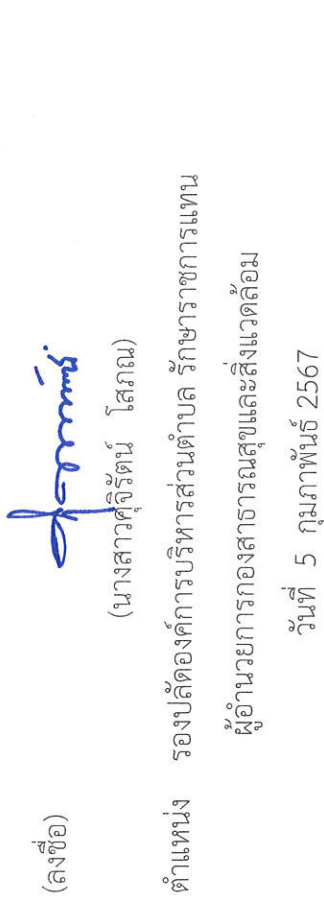 (ลงชื่อ)
(นางสาวศุจิรัตน์ โสภณ)
ตำแหน่ง รองปลัดองค์การบริหารส่วนตำบล รักษาราชการแทน
ผู้อำนวยการกองสาธารณสุขและสิ่งแวดล้อม
วันที่ 5 กุมภาพันธ์ 2567